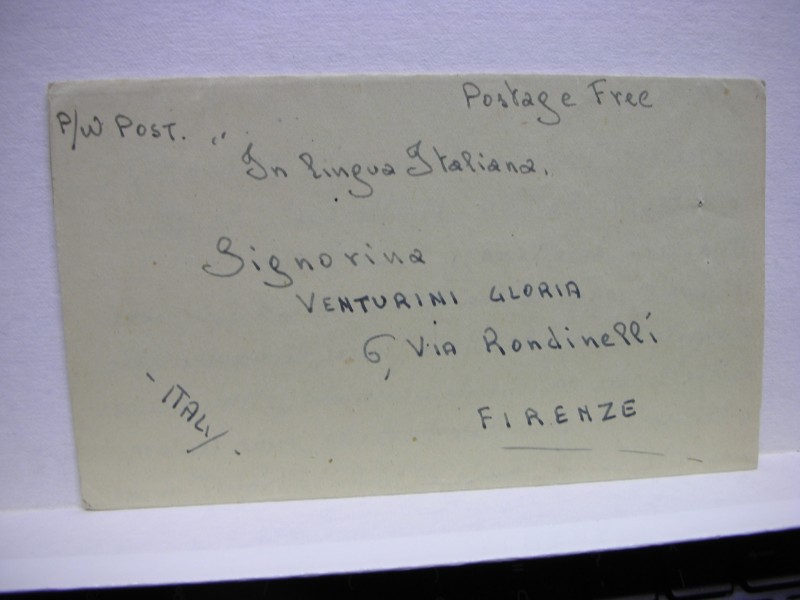 Postage Free
P/W POST. "
In lingua Italiana.
Signorina
VENTURINI GLORIA
6, Via Rondinelli
- ITALY -
FIRENZE